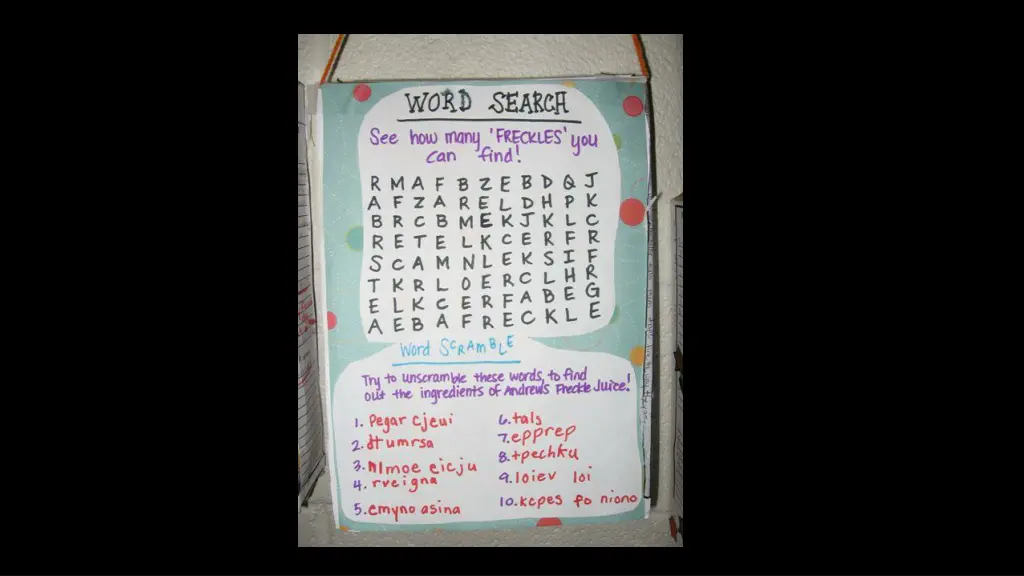 WORD SEARCH
See how many 'FRECKLES' you
can find!
R M A F B Z E B D Q J
A F Z A R E L D H P K
B R C B M E K J K L C
R E T E L K C E R F R
S C A M N L E K S I F
T K R L O E R C L H R
E L K C E R F A B E G
A E B A F R E C K L E
Word SCRAMBLE
Try to unscramble these words, to find
out the ingredients of Andrew's Freckle Juice!
1. Pegar cjeui
2. dtumrsa
3. nlmoe eicju
4. rveigna
5. emyno asina
6. tals
7. epprep
8. tpechku
9. loiev loi
10. kcpes fo niono